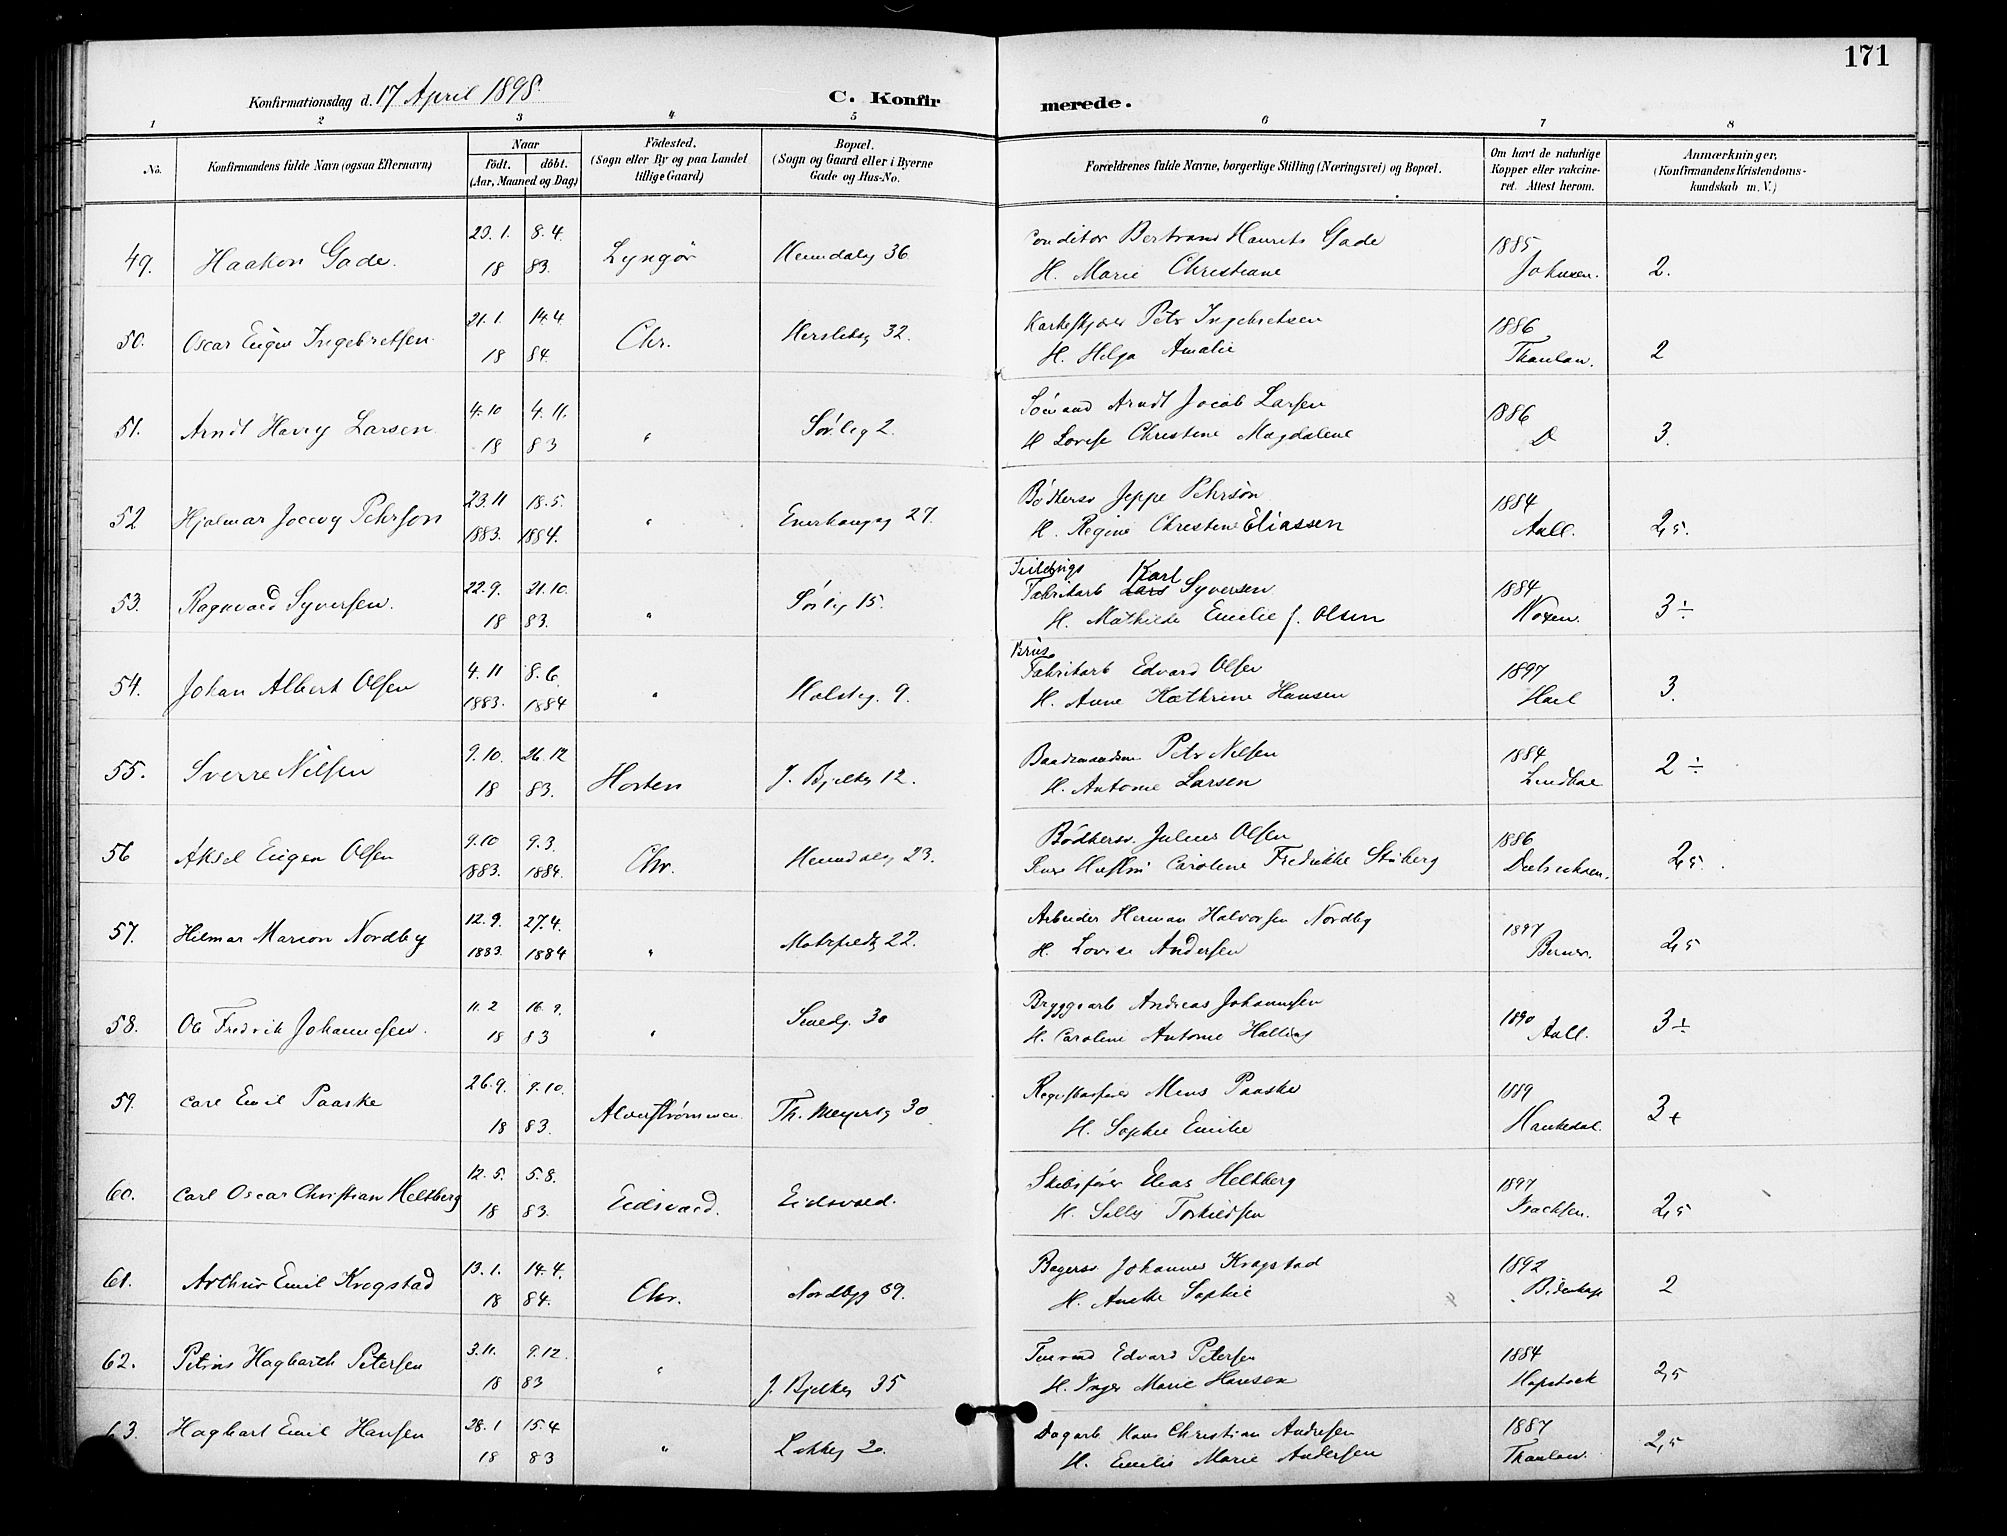 171
Konfirmationsdag d. 17 April 1898.
C. Konfirmerede.
1 2 3 4 5 6 7 8
No. Konfirmandens fulde Navn (ogsaa Efternavn) Naar födt. döbt. (Aar, Maaned og Dag) Födested. (Sogn eller By og paa Landet tillige Gaard) Bopæl. (Sogn og Gaard eller i Byerne Gade og Hus-No. Forældrenes fulde Navne, borgerlige Stilling (Næringsvei) og Bopæl. Om havt de naturlige Kopper eller vakcineret. Attest herom. Anmærkninger, (Konfirmandens Kristendomskundskab m. V.)
23.1. 8.4. Conditor Bertrand Haurits Gade 1885
49. Haakon Gade. 18 83. Lyngör 36 H. Marie Christiane Johnsen. 2.
21.1. 14.4. Petr Ingebretsen 1886
50. Oscar Eugen Ingebretsen. 18 84. Chr. Herslebsg 32. H. Helga Amalie Thaulow. 2
4.10 4.11. Sömand Arndt Jacob Larsen 1886
51. Arndt Harry Larsen. 18 83 " Sörlig 2. H Lovise Christine Magdalene D 3.
23.11 18.5. Bödkersv Jeppe Pehrsön 1884
52 Hjalmar Pehrson 1883. 1884. " Enerhaugsg 27. H. Regine Christine Eliassen Aall. 2,5.
22.9. 21.10. Fabrikarb Lars Karl Syversen 1884
53. Ragnvald Syversen. 18 83. " Sörlig 15. H. Mathilde Emilie f. Olsen 3 ÷
Brus
4.11 8.6. Fabrikarb Edvard Olsen 1897
54. Johan Albert Olsen 1883. 1884 " Holstsg. 9. H. Anne Kathrine Hansen 3.
9.10. 26.12 Baadsmandsm Petr Nilsen 1884
55. Sverre Nilsen 18 83. Horten J. Bjelkes 12. H. Antonie Larsen 2 ÷
9.10 9.3. Bödkersv. Julius Olsen 1886
56 Aksel Eugen Olsen 1883. 1884. Chr. Heimdalsg 23. Hustru Caroline Fredrikke Stüberg 2,5.
12.9. 27.4. Arbeider Herman Halvorsen Nordby 1897
57. Hilmar Marion Nordby 1883. 1884 " Motzfeldtsg 22. H. Lovise Andersen Berner. 2,5
11.2 16.9. Bryggearb Andreas Johannesen 1890
58. Ole Fredrik Johannesen. 18 83 " 30 H. Caroline Antonie Aall. 3 ÷
26.9. 9.10. Mons Paaske 1889
59. Carl Emil Paaske 18 83. Alverströmmen. Th. Meyersg 30. H. Sophie Emilie 3 +
12.5. 5.8. Skibsförer Elias Heltberg 1897
60. Carl Oscar Christian Heltberg 18 83. Eidsvold. Eidsvold. H. Torkildsen Isachsen. 2,5
13.1. 14.4. Bagersv Johannes Krogstad 1892
61. Arthur Emil Krogstad 18 84. Chr. Nordbyg 59. H. Anette Sophie Bidenkap 2
3.11. 9.12. Edvard Petersen 1884
62. Petrus Hagbarth Petersen 18 83 " J. Bjelkes 35 H. Inger Marie Hansen Hopstock 2,5
28.1 15.4 Dagarb Hans Christian Andresen 1887
63. Hagbart Emil Hansen 18 83 " Lakkeg 20. H. Emilie Marie Andersen Thaulow. 2,5